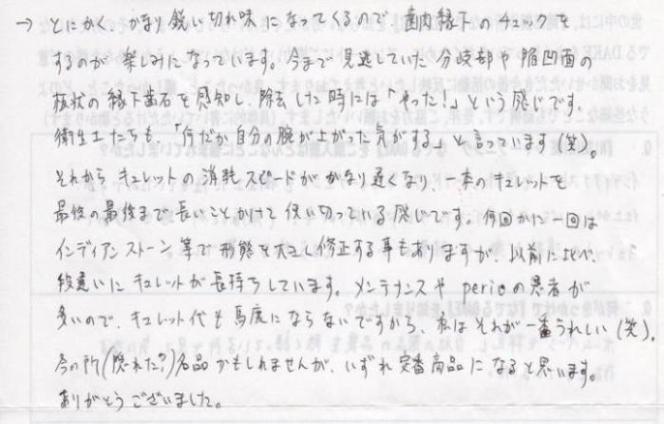 → とにかく、かなり鋭い切れ味になってくるので、歯肉縁下のチェックを
するのが楽しみになっています。今まで見逃していた分岐部や隣凹面の
板状の縁下歯石を感知し、除去した時には「やった!」という感じです。
衛生士たちも、「何だか自分の腕が上がった気がする」と言っています(笑)。
それからキュレットの消耗スピードがかなり遅くなり、一本のキュレットを
最後の最後まで長いことかけて使い切っている感じです。何回かに一回は
インディアンストーン等で形態を大きく修正する事もありますが、以前に比べ、
段違いにキュレットが長持ちしています。メンテナンスやperioの患者が
多いので、キュレット代も馬鹿にならないですから、私はそれが一番うれしい(笑)。
今の所(隠れた?)名品かもしれませんが、いずれ定番商品になると思います。
ありがとうございました。